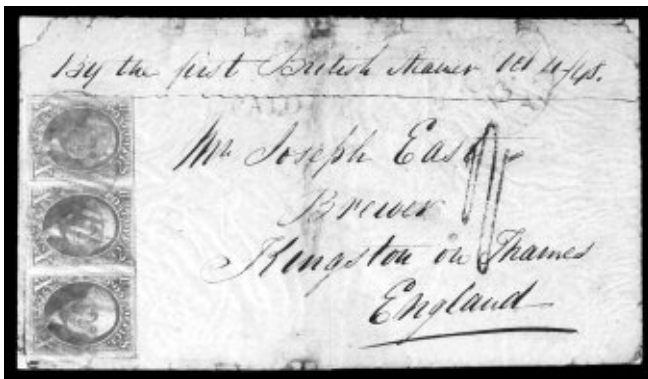 By the first British Steamer Oct 4/48.
Mr Joseph East
Brewer
Kingston on Thames
England